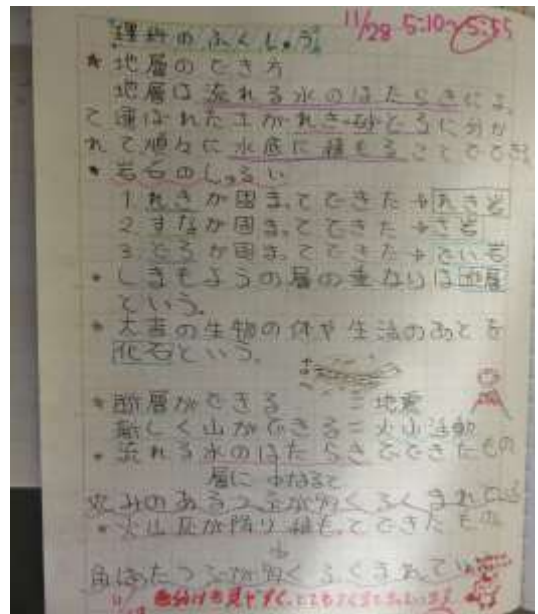 11/28 5:10〜5:55
理科のふくしゅう
★地層のでき方
地層は流れる水のはたらきによっ
て運ばれた土がれき・砂・どろに分か
れて順々に水底に積もることでできる
・岩石のしゅるい
1.れきが固まってできた→れき岩
2.すなが固まってできた→さ岩
3.どろが固まってできた→でい岩
・しまもようの層の重なりは地層
という。
・大昔の生物の体や生活のあとを
化石という。
・断層ができる＝地震
新しく山ができる＝火山活動
・流れる水のはたらきでできたもの
層になると
丸みのあるつぶが多くふくまれている
・火山灰が降り積もってできたもの
↓
角ばったつぶが多くふくまれてい
色分けも見やすく、